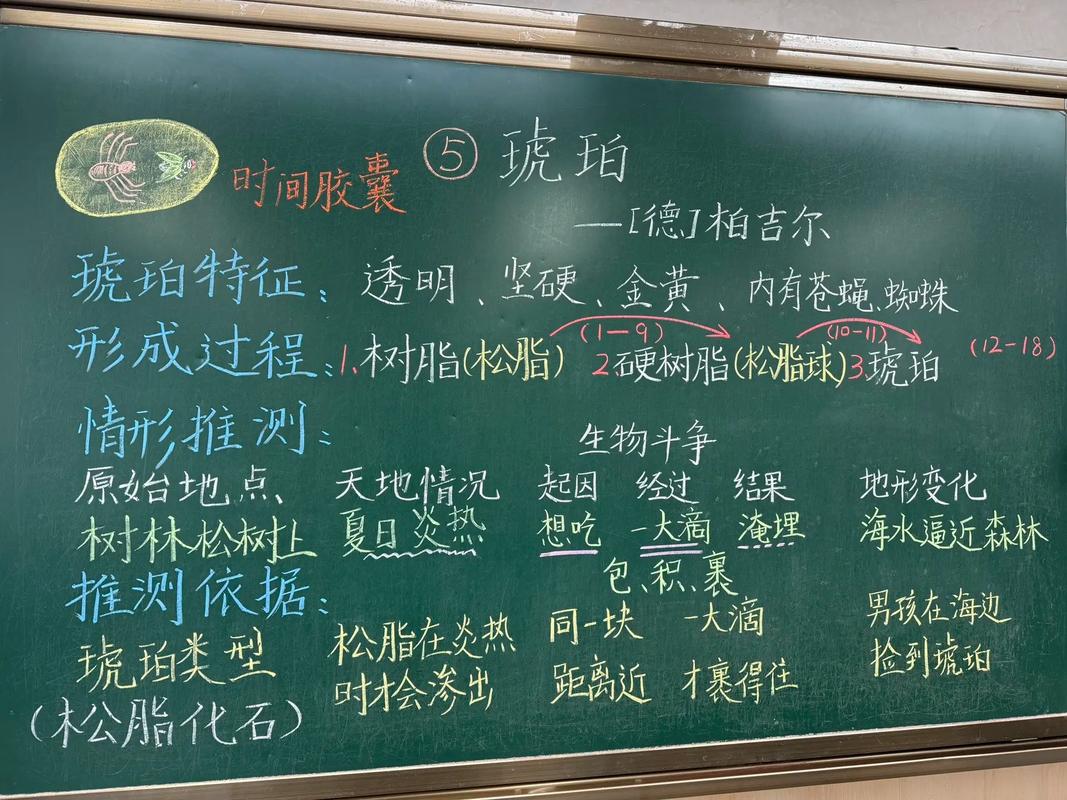 时间胶囊 ⑤ 琥珀
—[德]柏吉尔
琥珀特征：透明、坚硬、金黄、内有苍蝇、蜘蛛
形成过程：1.树脂(松脂) (1-9) 2硬树脂(松脂球) (10-11) 3.琥珀 (12-18)
情形推测： 生物斗争
原始地点、 天地情况 起因 经过 结果 地形变化
树林松树上 夏日炎热 想吃 一大滴 淹埋 海水逼近森林
包、积、裹
推测依据：
琥珀类型 松脂在炎热 同一块 一大滴 男孩在海边
(松脂化石) 时才会渗出 距离近 才裹得住 捡到琥珀